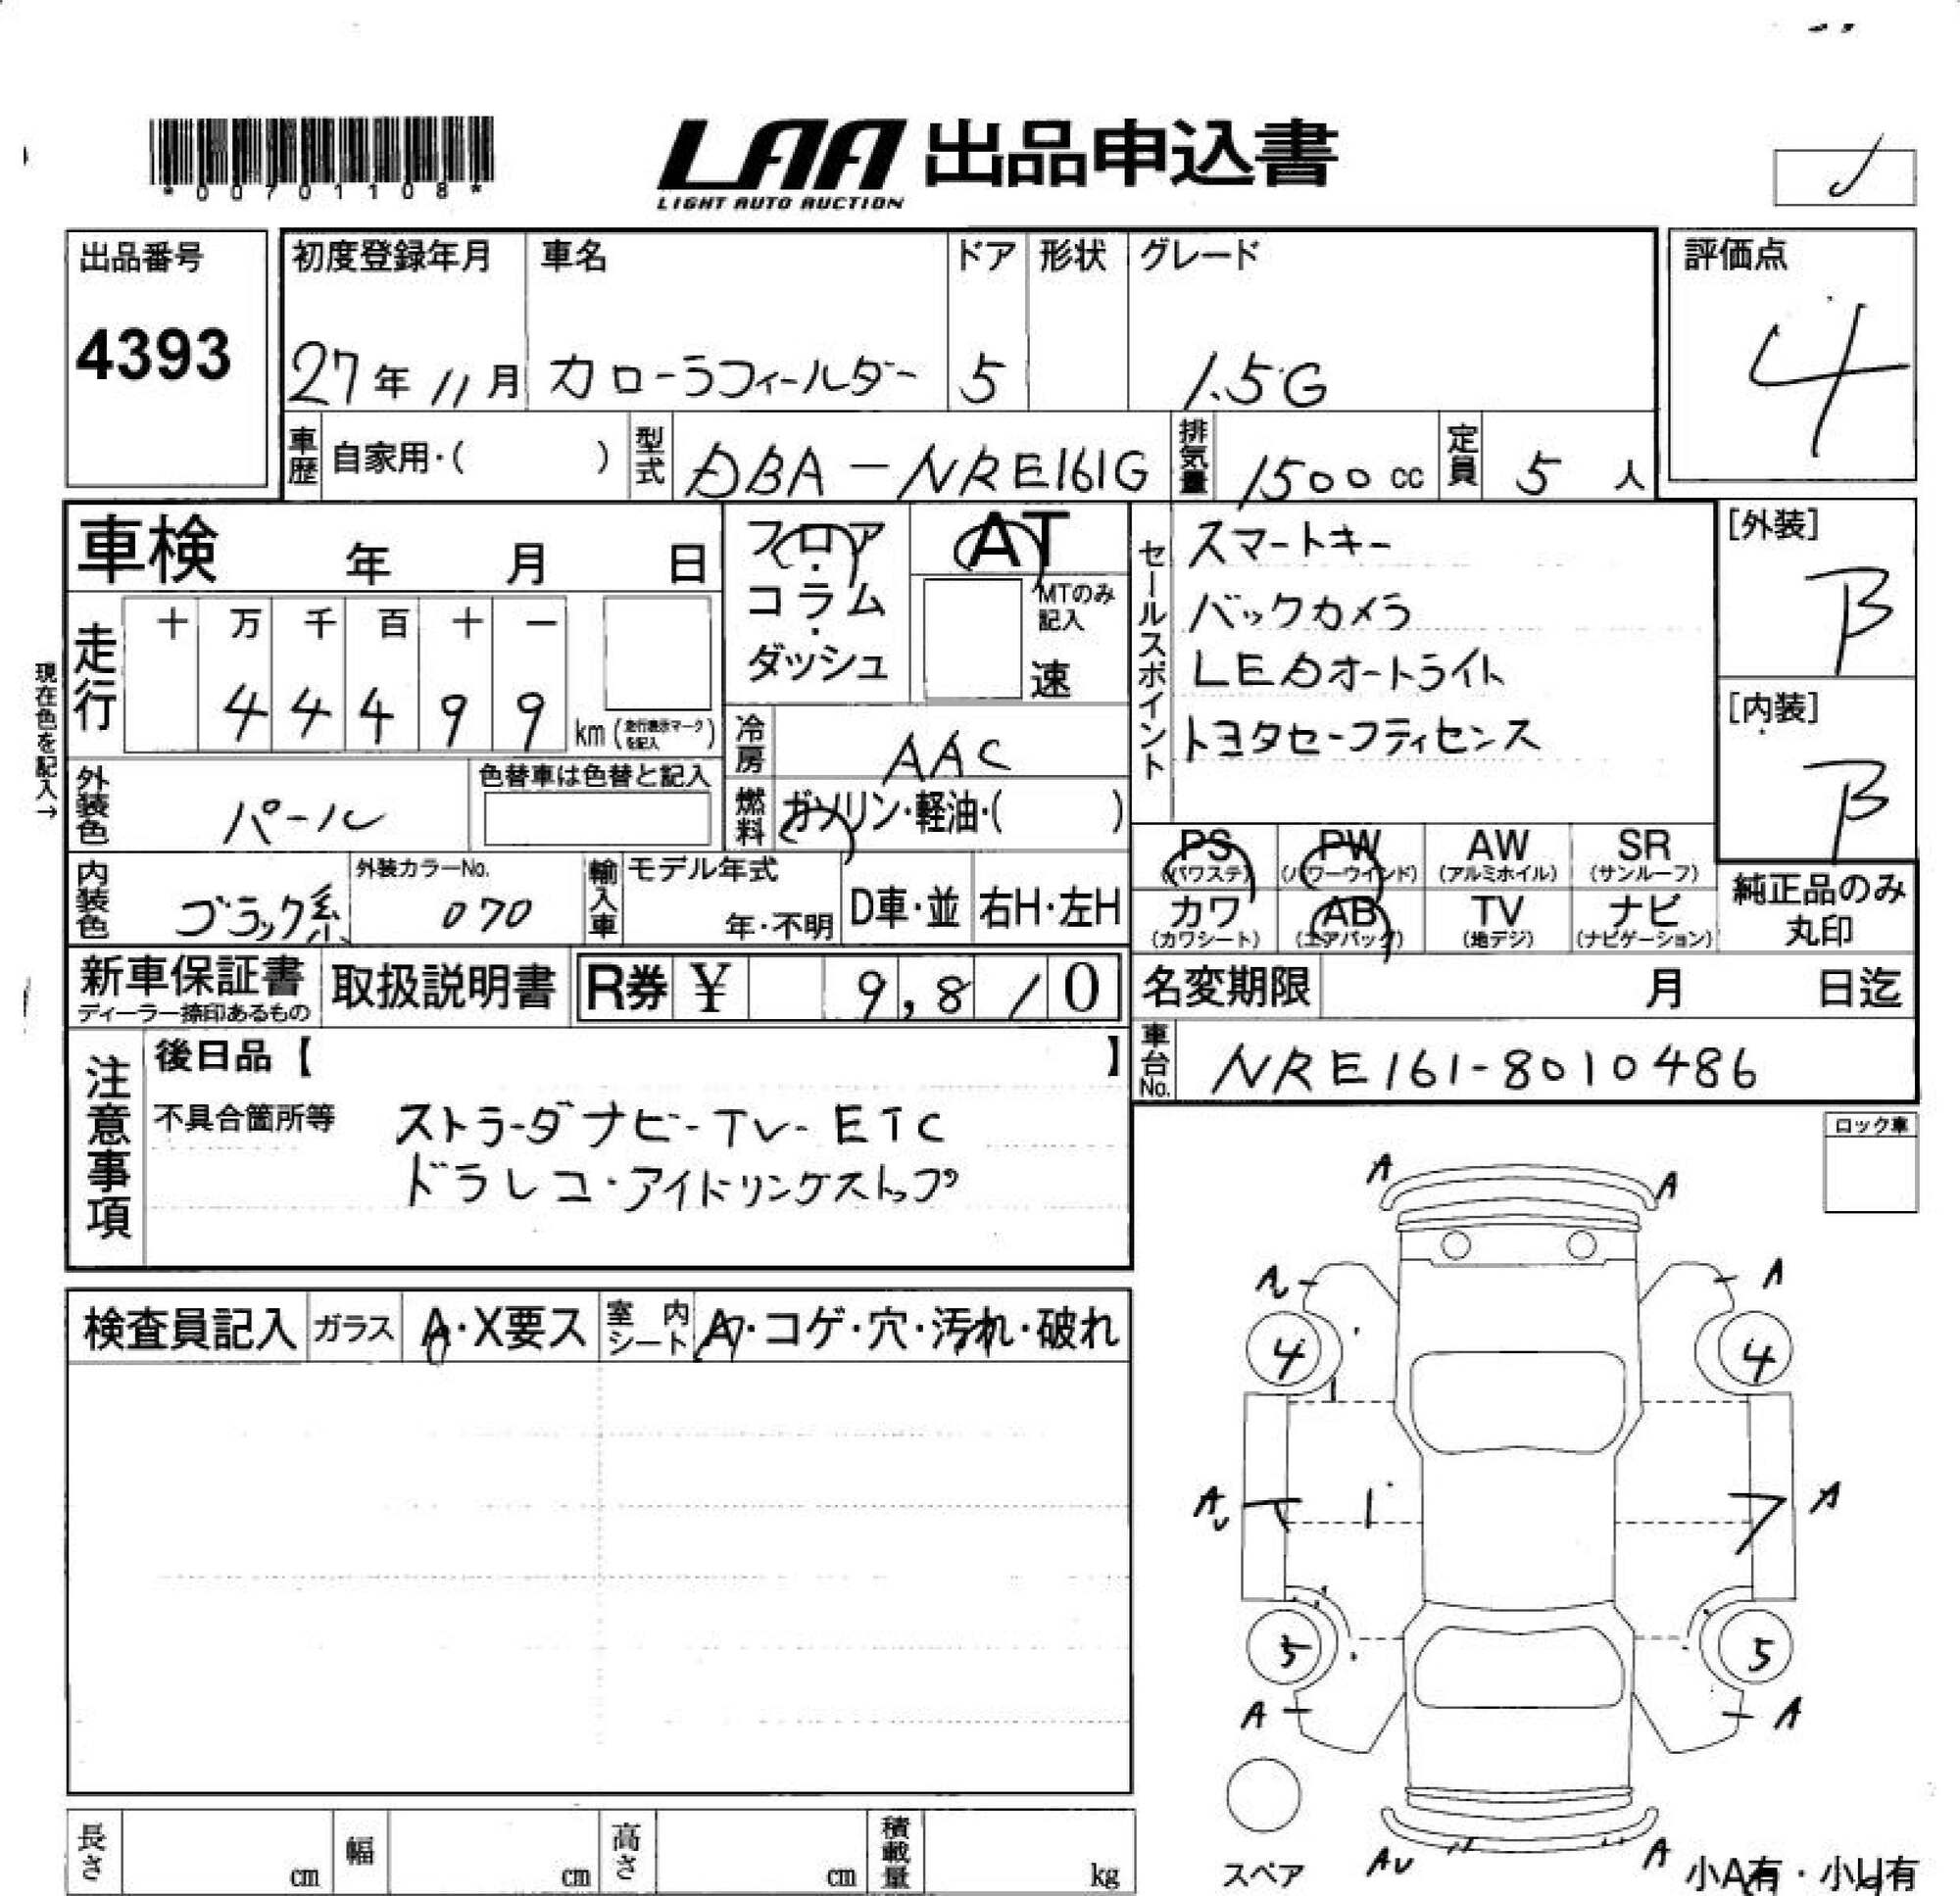 *00701108*
LAA 出品申込書
LIGHT AUTO AUCTION
出品番号
4393
初度登録年月 車名 ドア 形状 グレード
27年 11月 カローラフィールダー 5 1.5G
評価点
4
車歴 自家用・( ) 型式 DBA-NRE161G 排気量 1500cc 定員 5人
車検 年 月 日
フロア・コラム・ダッシュ
AT
MTのみ記入
速
セールスポイント
スマートキー
バックカメラ
LEDオートライト
トヨタセーフティセンス
[外装]
B
[内装]
B
現在色を記入→
走行 十 万 千 百 十 一
4 4 4 9 9 km (走行表示マークを記入)
冷房 AAC
外装色 パール
色替車は色替と記入
燃料 ガソリン・軽油・( )
PS (パワステ) PW (パワーウインド) AW (アルミホイル) SR (サンルーフ)
カワ (カワシート) AB (エアバッグ) TV (地デジ) ナビ (ナビゲーション)
純正品のみ丸印
内装色 ブラック系 外装カラーNo. 070 輸入車 モデル年式 年・不明 D車・並 右H・左H
新車保証書 ディーラー捺印あるもの 取扱説明書 R券 ¥ 9,810
名変期限 月 日迄
車台No. NRE161-8010486
注意事項
後日品【 】
不具合箇所等 ストラーダナビ-TV-ETC
ドラレコ・アイドリングストップ
ロック車
検査員記入 ガラス A・X要ス 室内シート A・コゲ・穴・汚れ・破れ
A A
A
4 4
A
5 5
A A
スペア
AU A
小A有・小U有
長さ cm 幅 cm 高さ cm 積載量 kg